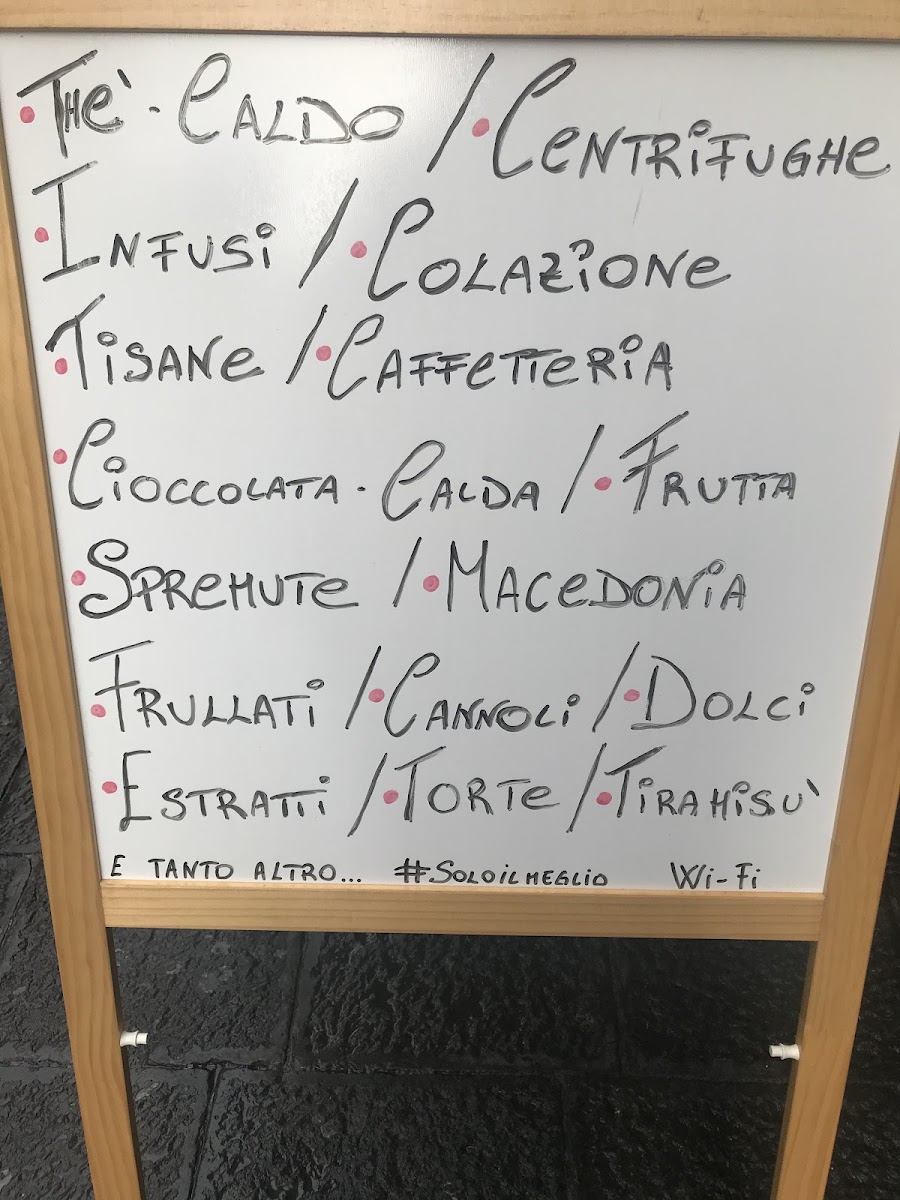 • THè - CALDO / • CENTRIFUGHE
• INFUSI / • COLAZIONE
• TISANE / • CAFFETTERIA
• CIOCCOLATA - CALDA / • FRUTTA
• SPREMUTE / • MACEDONIA
• FRULLATI / • CANNOLI / • DOLCI
• ESTRATTI / • TORTE / • TIRAMISU'
E TANTO ALTRO... #SOLOILMEGLIO WI-FI